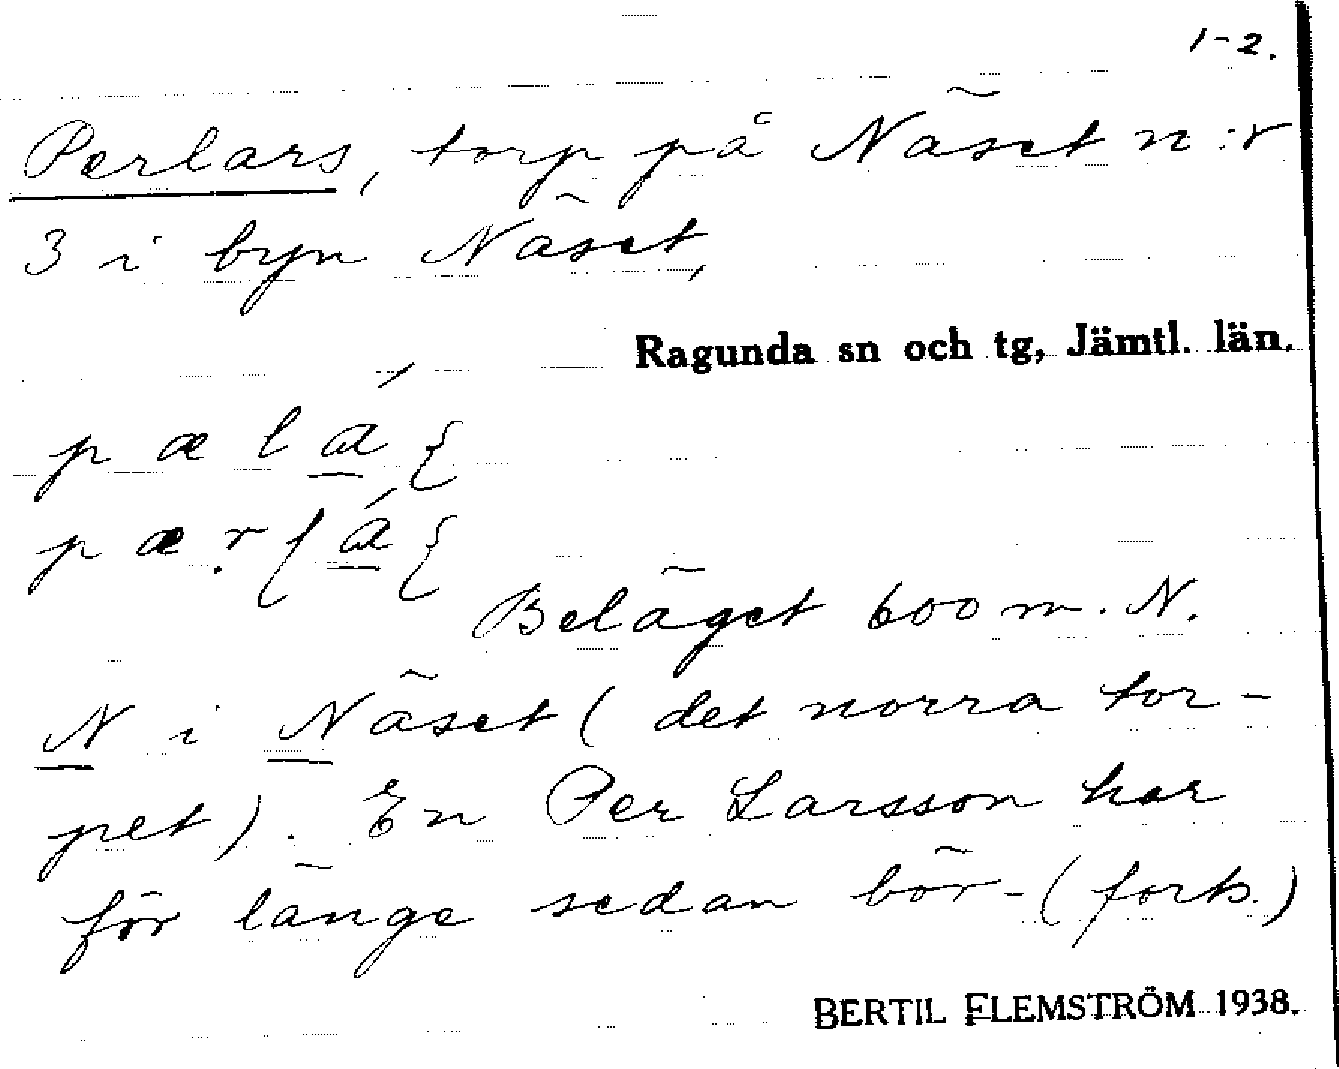 1-2.
Perlars, torp på Näset n:r
3 i byn Näset,
Ragunda sn och tg, Jämtl. län.
Beläget 600 m. N.
N i Näset (det norra tor-
pet). En Per Larsson har
för länge sedan bör- (forts.)
BERTIL FLEMSTRÖM 1938.